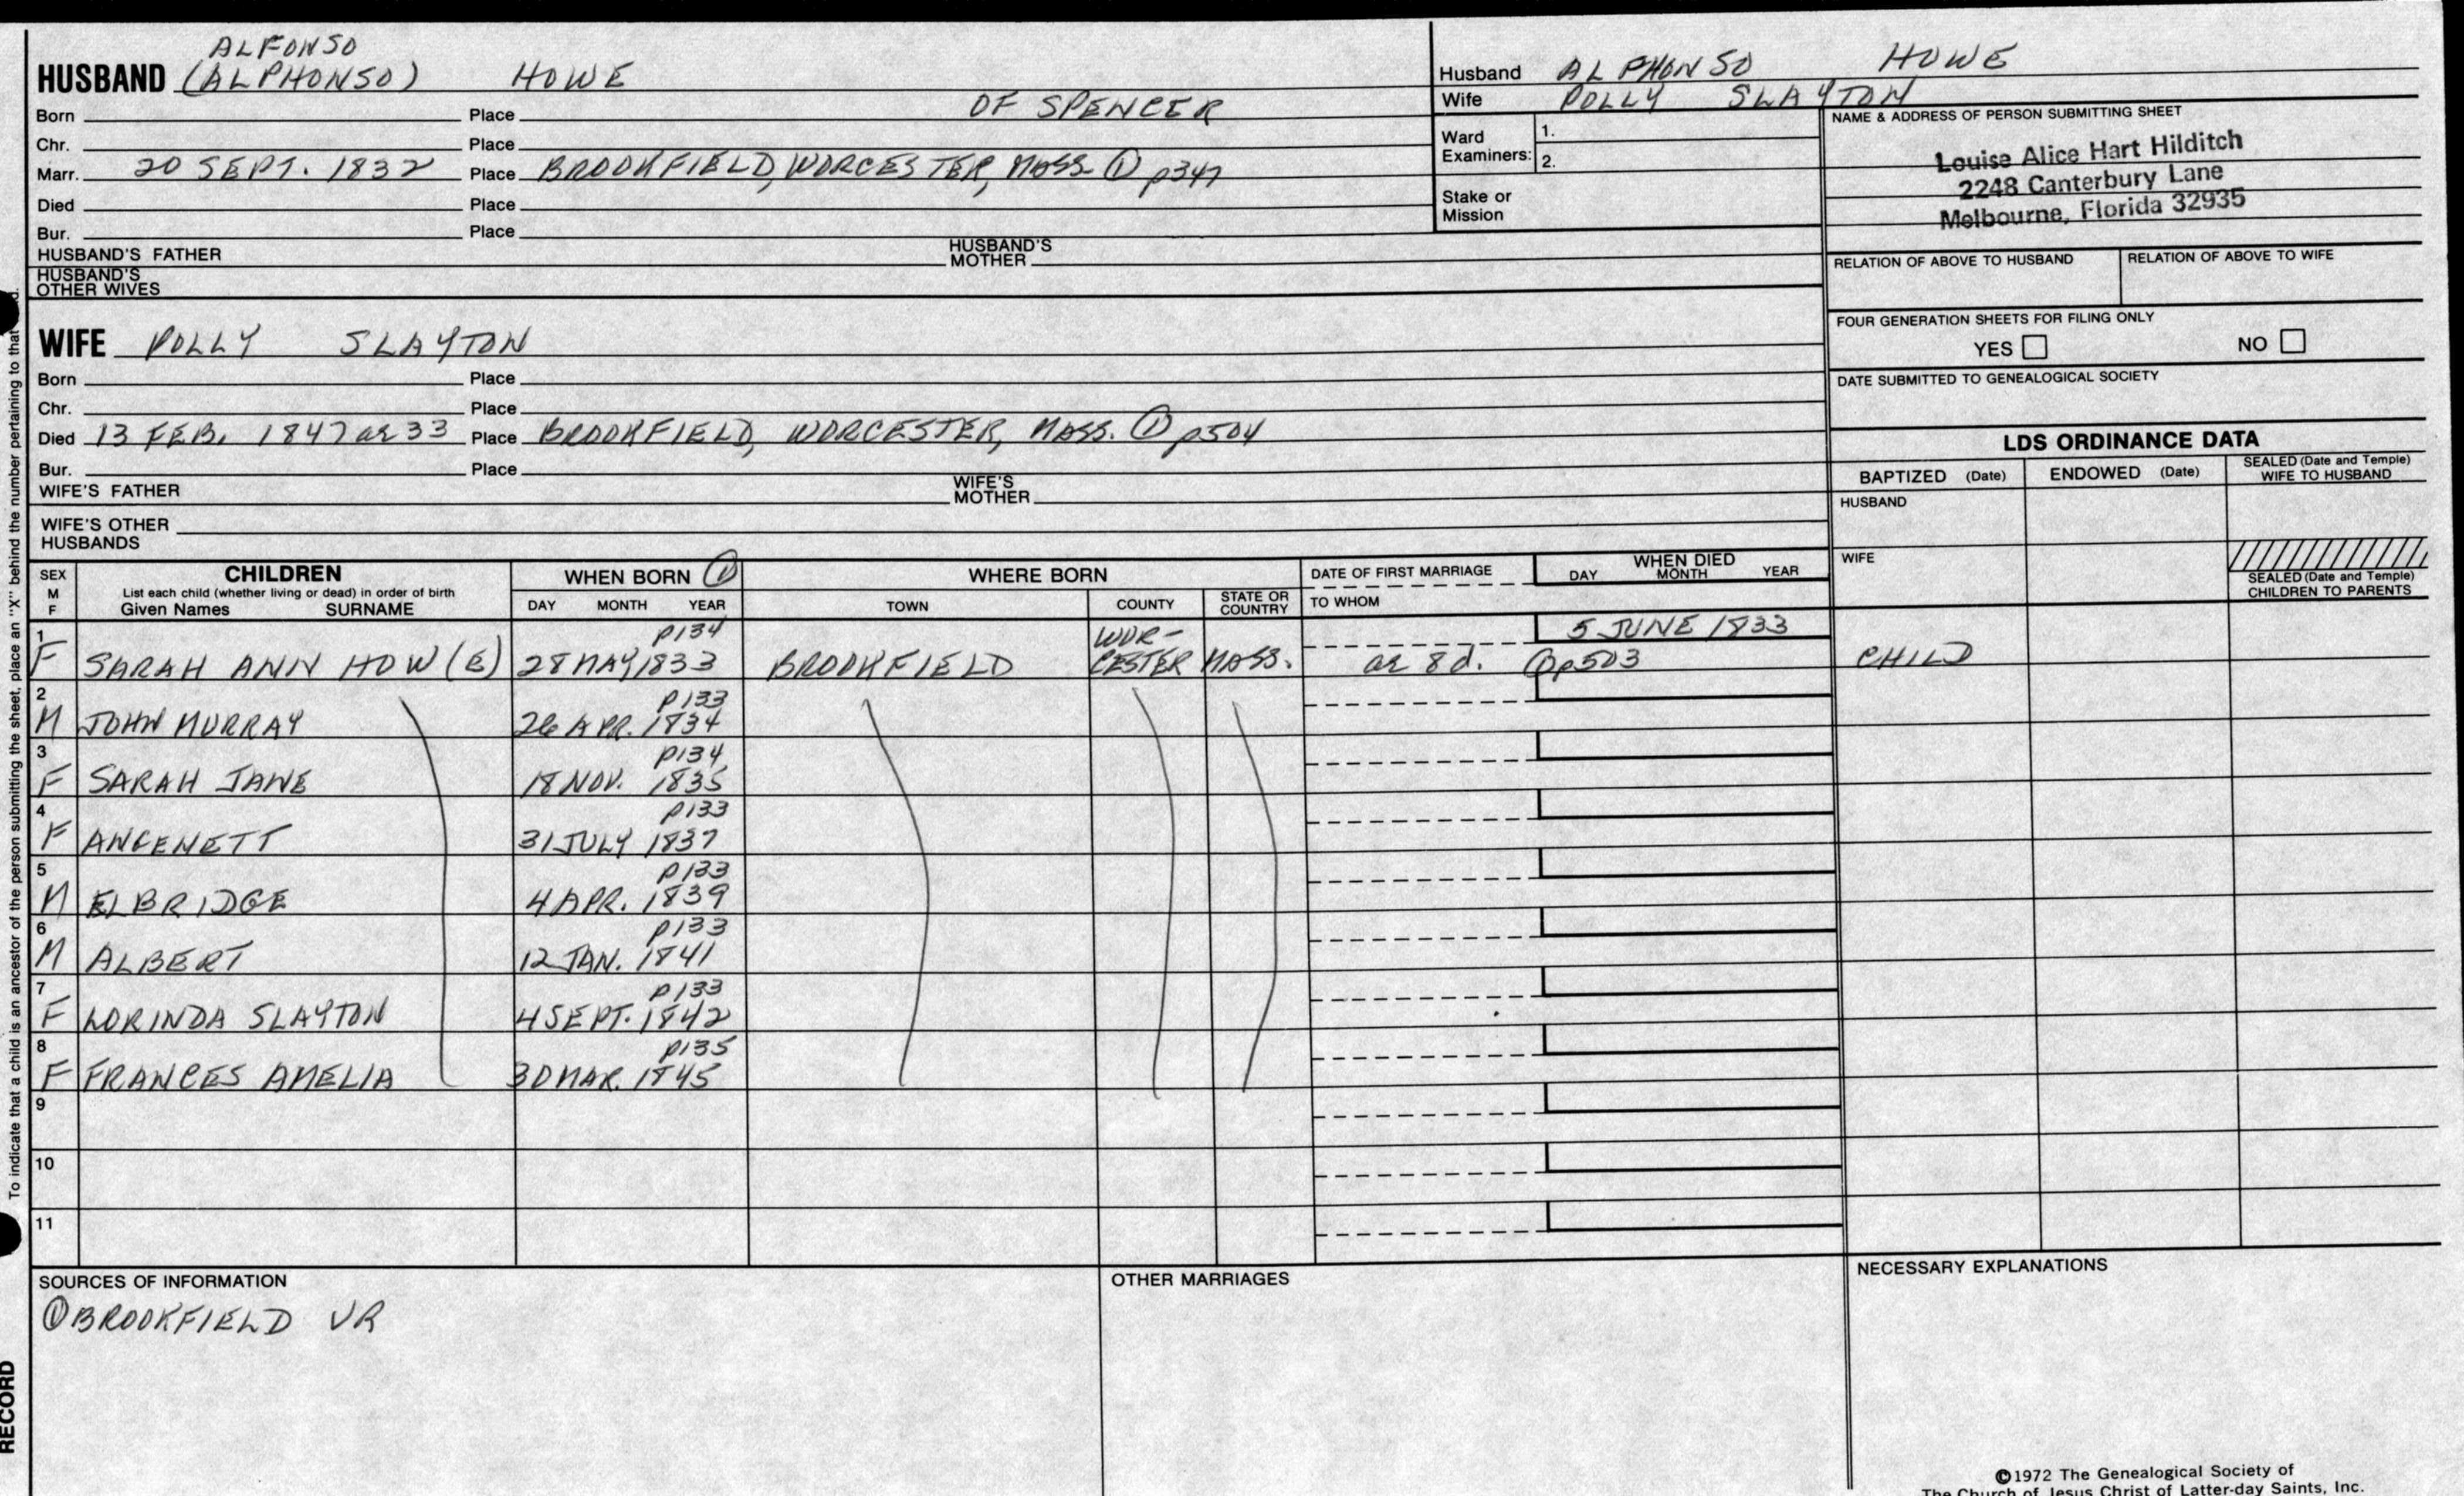 ALFONSO
HUSBAND (ALPHONSO) HOWE
Born Place OF SPENCER
Chr. Place
Marr. 20 SEPT. 1832 Place BROOKFIELD, WORCESTER, MASS. ① p347
Died Place
Bur. Place
HUSBAND'S FATHER HUSBAND'S MOTHER
HUSBAND'S
OTHER WIVES
Husband ALPHONSO HOWE
Wife POLLY SLAYTON
Ward
Examiners: 1.
2.
Stake or
Mission
NAME & ADDRESS OF PERSON SUBMITTING SHEET
Louise Alice Hart Hilditch
2248 Canterbury Lane
Melbourne, Florida 32935
RELATION OF ABOVE TO HUSBAND RELATION OF ABOVE TO WIFE
FOUR GENERATION SHEETS FOR FILING ONLY
YES NO
DATE SUBMITTED TO GENEALOGICAL SOCIETY
WIFE POLLY SLAYTON
Born Place
Chr. Place
Died 13 FEB. 1847 ae 33 Place BROOKFIELD, WORCESTER, MASS. ① p504
Bur. Place
WIFE'S FATHER WIFE'S MOTHER
WIFE'S OTHER
HUSBANDS
LDS ORDINANCE DATA
BAPTIZED (Date) ENDOWED (Date) SEALED (Date and Temple)
WIFE TO HUSBAND
HUSBAND
WIFE
SEALED (Date and Temple)
CHILDREN TO PARENTS
SEX
M
F
CHILDREN
List each child (whether living or dead) in order of birth
Given Names SURNAME
WHEN BORN ①
DAY MONTH YEAR
WHERE BORN
TOWN COUNTY STATE OR
COUNTRY
DATE OF FIRST MARRIAGE
TO WHOM
WHEN DIED
DAY MONTH YEAR
1 p134 WOR- 5 JUNE 1833
F SARAH ANN HOW(E) 28 MAY 1833 BROOKFIELD CESTER MASS. ae 8d. ① p503 CHILD
2 p133
M JOHN MURRAY 26 APR. 1834
3 p134
F SARAH JANE 18 NOV. 1835
4 p133
F ANGENETT 31 JULY 1837
5 p133
M ELBRIDGE 4 APR. 1839
6 p133
M ALBERT 12 JAN. 1841
7 p133
F LORINDA SLAYTON 4 SEPT. 1842
8 p135
F FRANCES AMELIA 30 MAR. 1845
9
10
11
SOURCES OF INFORMATION
① BROOKFIELD VR
OTHER MARRIAGES
NECESSARY EXPLANATIONS
©1972 The Genealogical Society of
The Church of Jesus Christ of Latter-day Saints, Inc.
To indicate that a child is an ancestor of the person submitting the sheet, place an "X" behind the number pertaining to that
RECORD